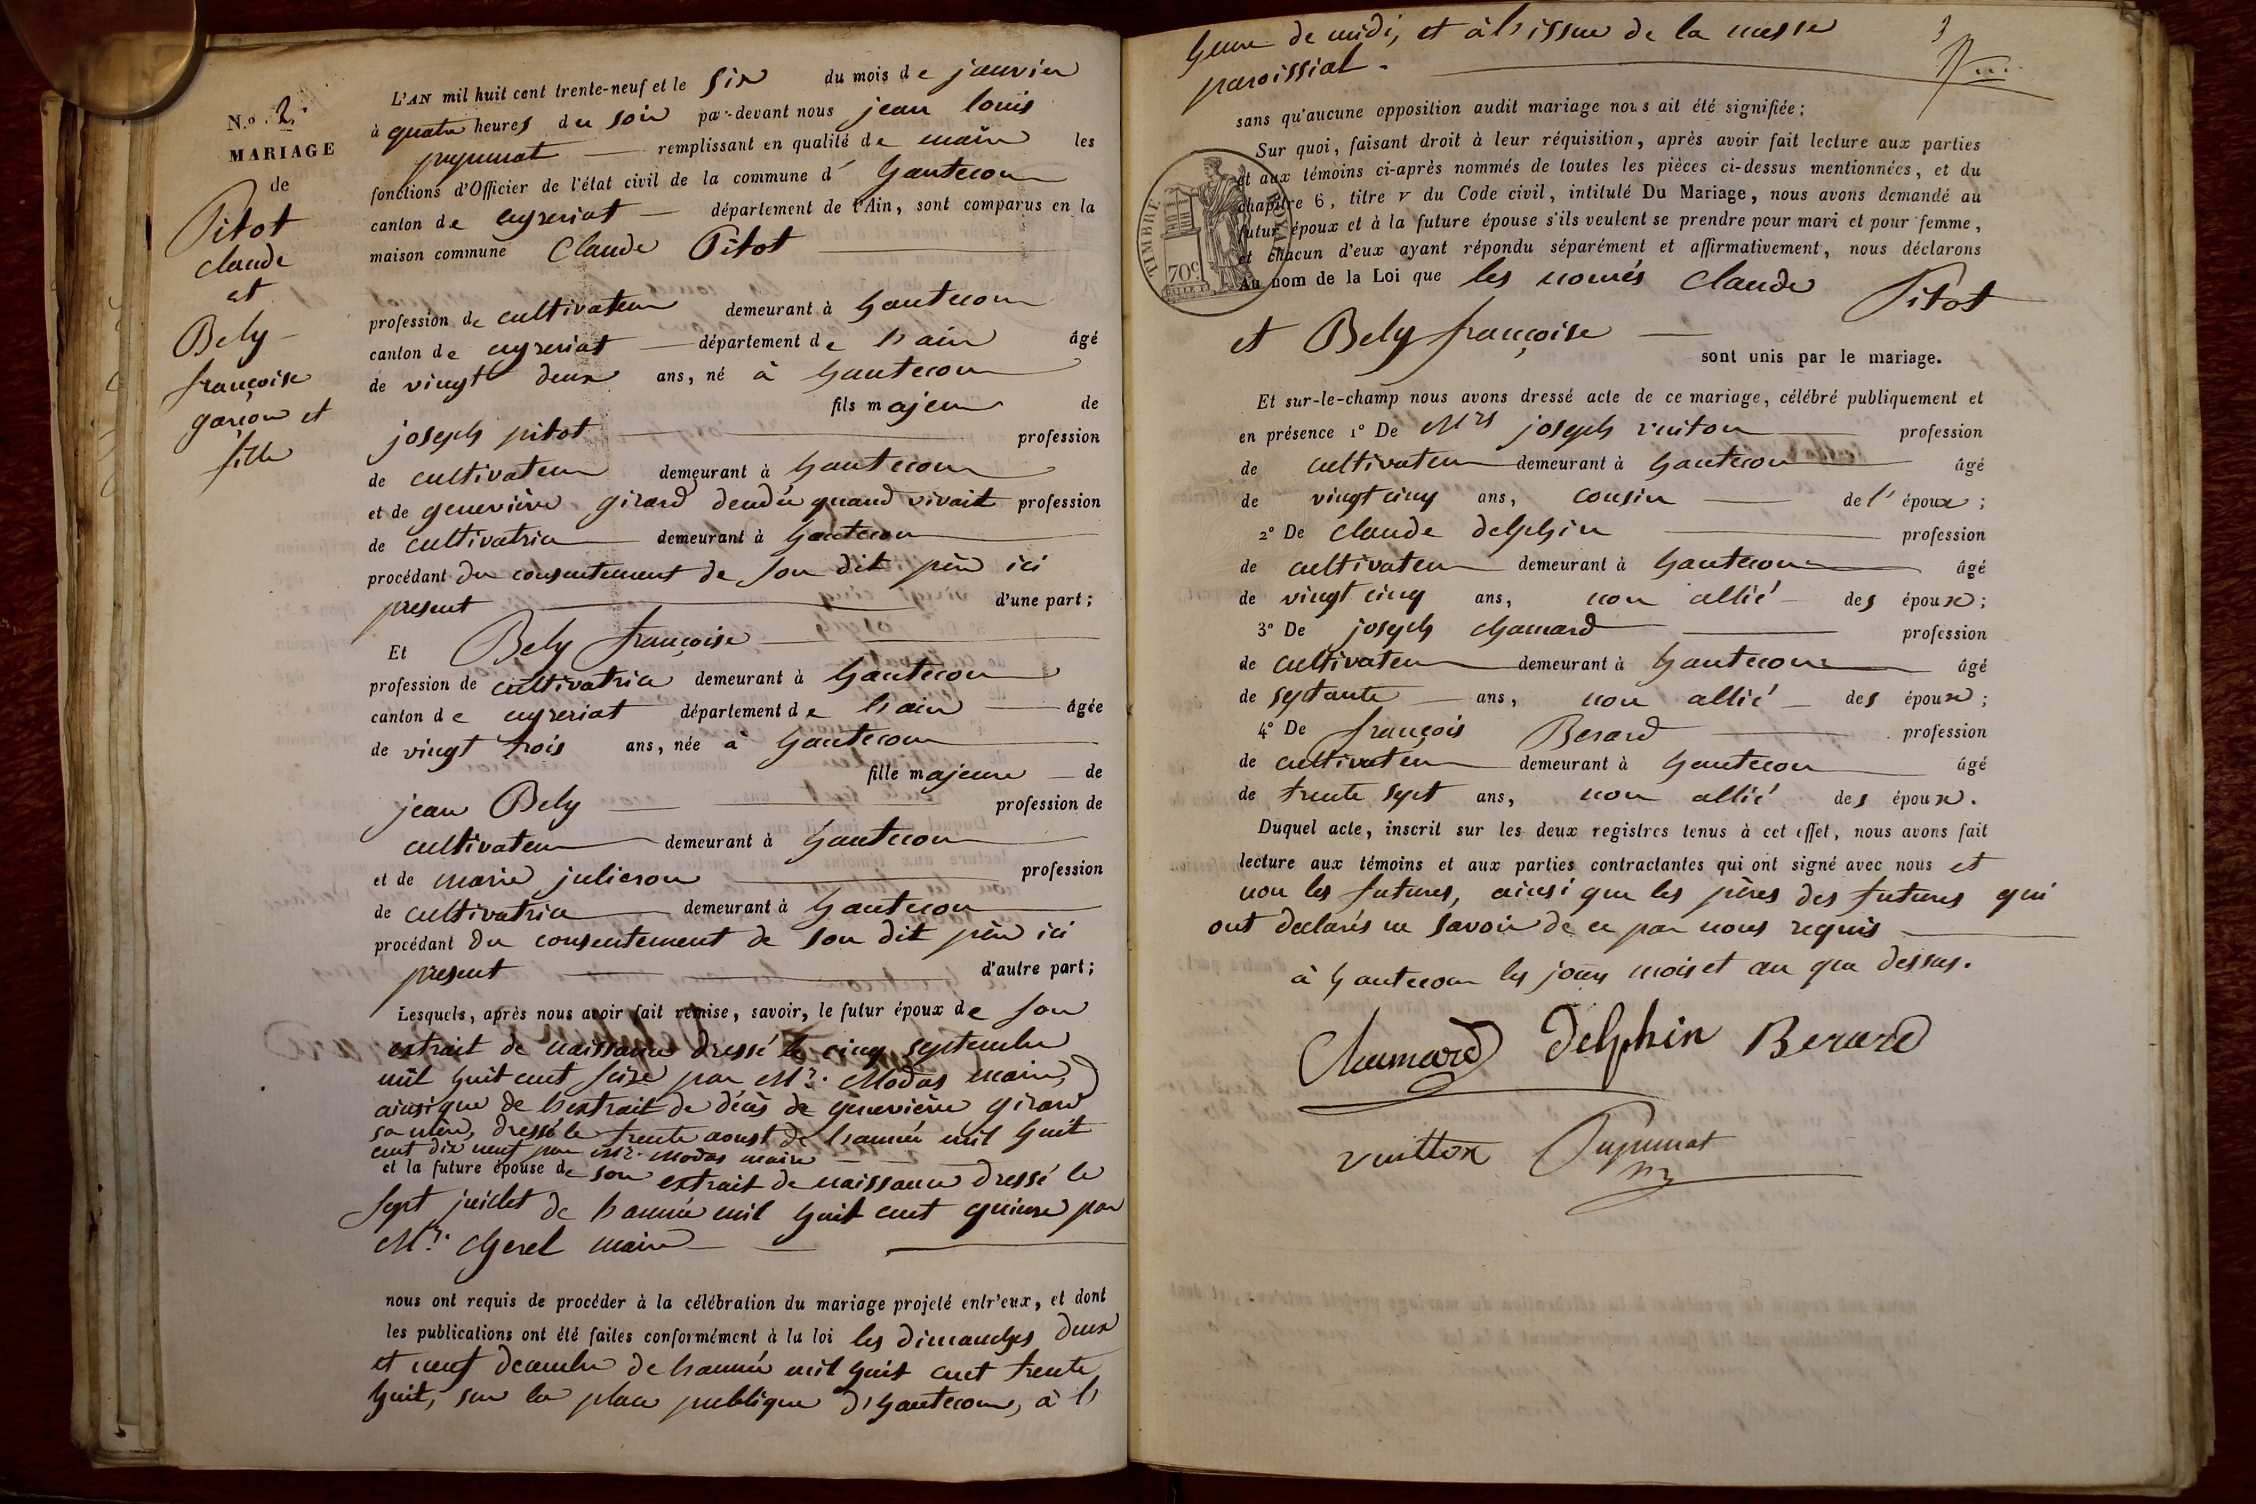 N.o 2.
MARIAGE
de
Pitot
claude
et
Bely
françoise
garçon et
fille
L'AN mil huit cent trente-neuf et le six du mois de janvier
à quatre heures du soir par-devant nous jean louis
pupunat remplissant en qualité de maire les
fonctions d'Officier de l'état civil de la commune d' hautecour
canton de ceyzeriat département de l'Ain, sont comparus en la
maison commune Claude Pitot
profession de cultivateur demeurant à hautecour
canton de ceyzeriat département de l'ain âgé
de vingt deux ans, né à hautecour
fils majeur de
joseph pitot profession
de cultivateur demeurant à hautecour
et de geneviève girard décédée quand vivait profession
de cultivatrice demeurant à hautecour
procédant du consentement de son dit père ici
present d'une part;
Et Bely françoise
profession de cultivatrice demeurant à hautecour
canton de ceyzeriat département de l'ain âgée
de vingt trois ans, née à hautecour
fille majeure de
jean Bely profession de
cultivateur demeurant à hautecour
et de marie julieron profession
de cultivatrice demeurant à hautecour
procédant du consentement de son dit père ici
present d'autre part;
Lesquels, après nous avoir fait remise, savoir, le futur époux de son
extrait de naissance dressé le cinq septembre
mil huit cent seize par Mr. Modas maire,
ainsi que de l'extrait de décès de geneviève girard
sa mère, dressé le trente aoust de l'année mil huit
cent dix neuf par Mr. Modas maire
et la future épouse de son extrait de naissance dressé le
sept juillet de l'année mil huit cent quinze par
Mr. cherel maire
nous ont requis de procéder à la célébration du mariage projeté entr'eux, et dont
les publications ont été faites conformément à la loi les dimanches deux
et neuf decembre de l'année mil huit cent trente
huit, sur la place publique d'hautecour, à l'
heure de midi, et à l'issue de la messe
paroissial.
3
sans qu'aucune opposition audit mariage nous ait été signifiée;
Sur quoi, faisant droit à leur réquisition, après avoir fait lecture aux parties
et aux témoins ci-après nommés de toutes les pièces ci-dessus mentionnées, et du
chapitre 6, titre V du Code civil, intitulé Du Mariage, nous avons demandé au
futur époux et à la future épouse s'ils veulent se prendre pour mari et pour femme,
et chacun d'eux ayant répondu séparément et affirmativement, nous déclarons
Au nom de la Loi que les només Claude Pitot
TIMBRE ROYAL
70c
et Bely françoise
sont unis par le mariage.
Et sur-le-champ nous avons dressé acte de ce mariage, célébré publiquement et
en présence 1o De Mrs joseph vuiton profession
de cultivateur demeurant à hautecour âgé
de vingt cinq ans, cousin de l' époux;
2o De claude delphin profession
de cultivateur demeurant à hautecour âgé
de vingt cinq ans, non allié des époux;
3o De joseph chamard profession
de cultivateur demeurant à hautecour âgé
de septante ans, non allié des époux;
4o De françois Berard profession
de cultivateur demeurant à hautecour âgé
de trente sept ans, non allié des époux.
Duquel acte, inscrit sur les deux registres tenus à cet effet, nous avons fait
lecture aux témoins et aux parties contractantes qui ont signé avec nous et
non les futures, ainsi que les pères des futures qui
ont declarés ne savoir de ce par nous requis
à hautecour les jour, mois et an que dessus.
Chamard Delphin Berard
vuitton Pupunat